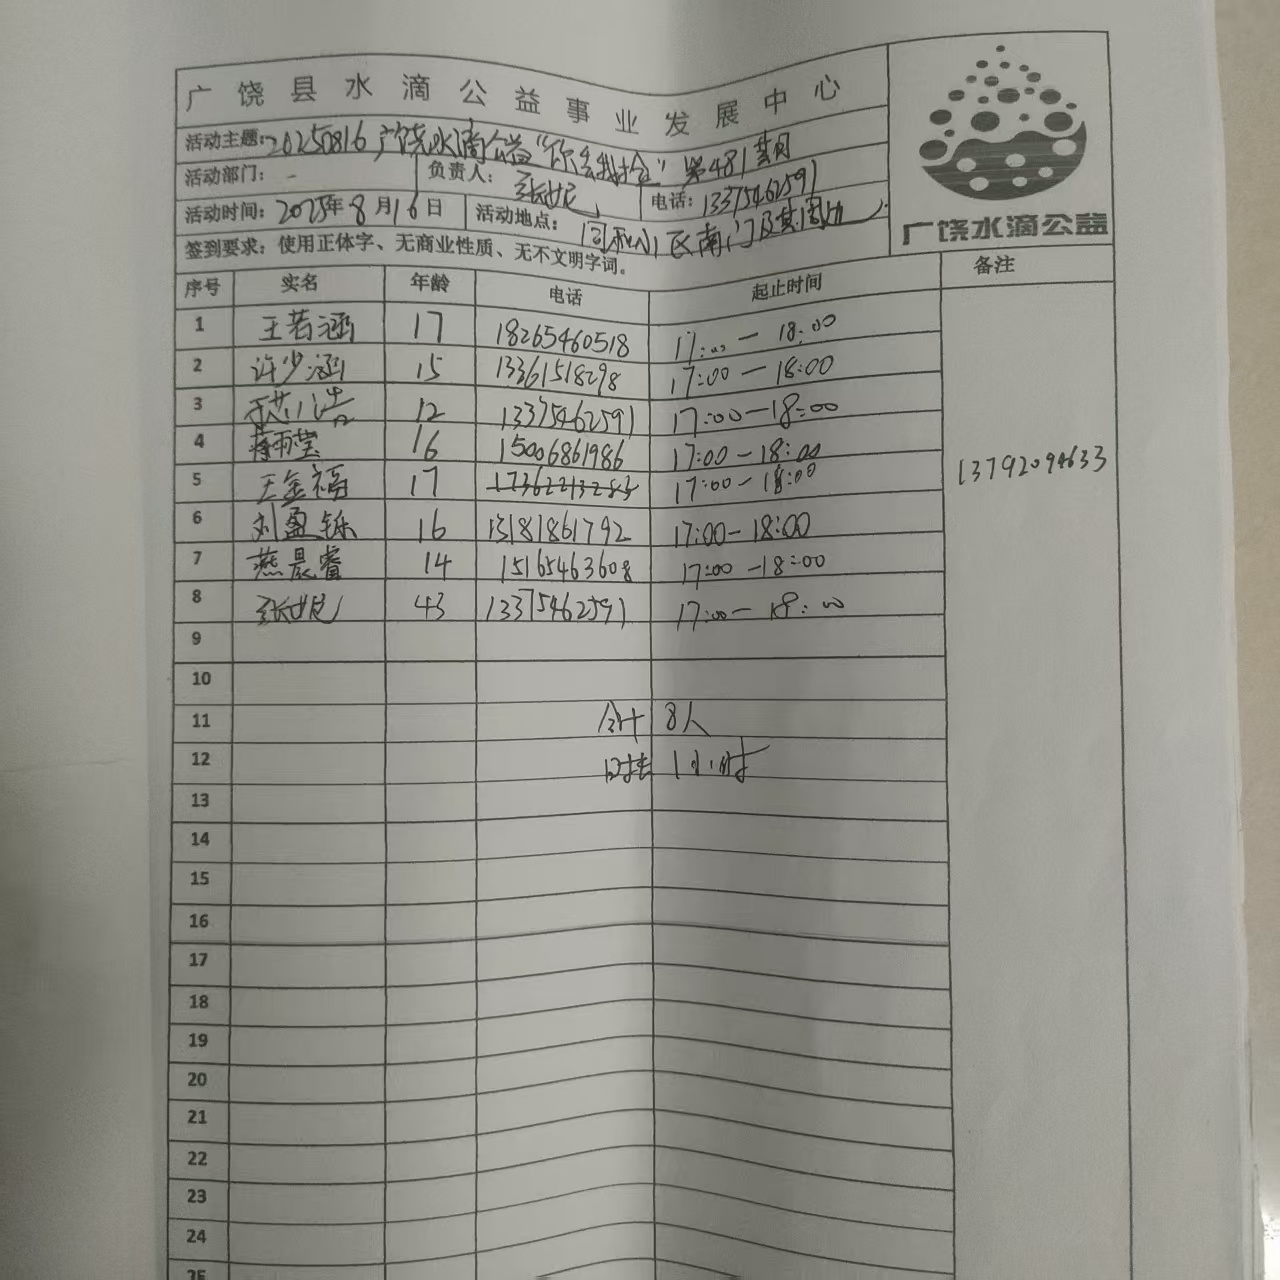 广饶县水滴公益事业发展中心
活动主题:20250816广饶水滴公益"你丢我捡"第481期
活动部门: - 负责人: 张妮 电话:13375462591
活动时间: 2025年8月16日 活动地点: 同和小区南门及其周边
签到要求: 使用正体字、无商业性质、无不文明字词。
广饶水滴公益
序号 实名 年龄 电话 起止时间 备注
1 王若涵 17 18265460518 17:00-18:00
2 许少涵 15 13361518298 17:00-18:00
3 浩 12 13375462591 17:00-18:00
4 蒋雨莹 16 15006861986 17:00-18:00
5 王金福 17 17362213283 17:00-18:00 13792094633
6 刘盈铄 16 13181861792 17:00-18:00
7 燕晨睿 14 15165463608 17:00-18:00
8 张妮 43 13375462591 17:00-18:00
9
10
11 合计 8人
12 时长 1小时
13
14
15
16
17
18
19
20
21
22
23
24
25